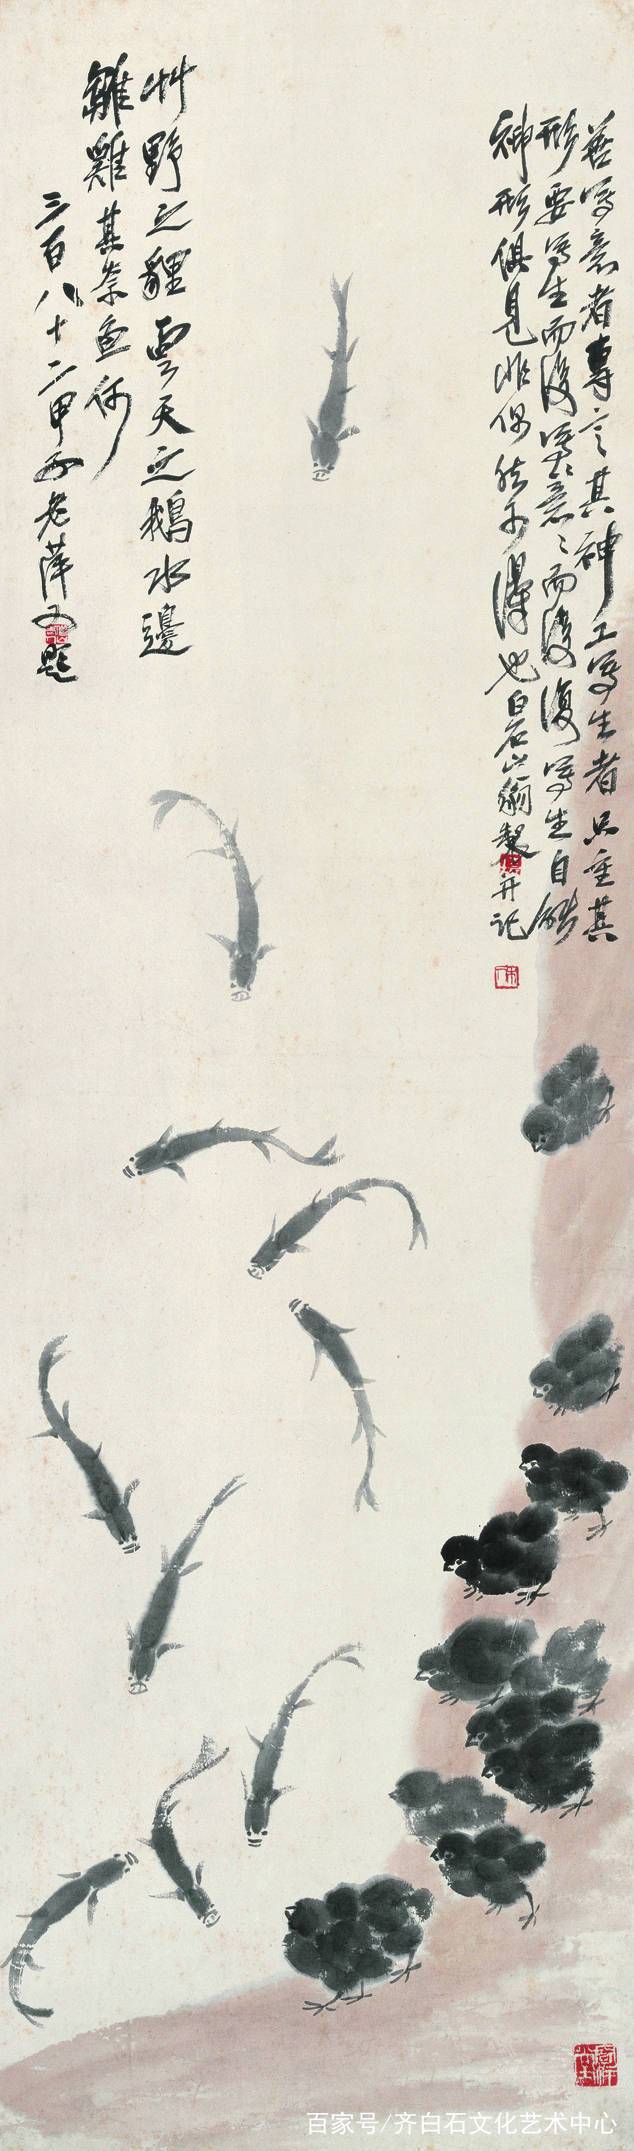 善寫意者專言其神工寫生者只重其
形要寫生而後寫意〻而後復寫生自能
神形俱見非偶然可得也白石山翁製并記
木人
艸野之貍雲天之鵝水邊
雛雞其奈魚何
三百八十二甲子老萍又題
百家号/齐白石文化艺术中心